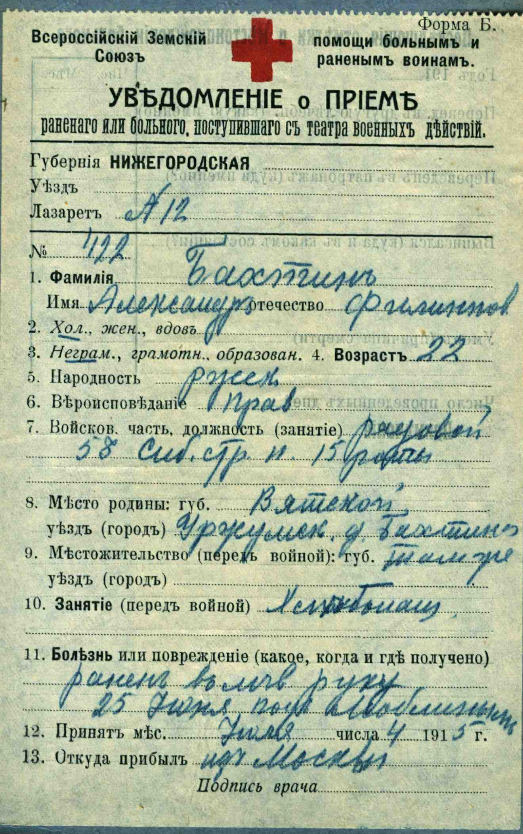 Форма Б.
Всероссійскій Земскій Союзъ
помощи больнымъ и раненымъ воинамъ.
УВѢДОМЛЕНІЕ о ПРІЕМѢ
раненаго или больного, поступившаго съ театра военныхъ дѣйствій.
Губернія НИЖЕГОРОДСКАЯ
Уѣздъ
Лазаретъ №12
№ 422
1. Фамилія Бахтинъ
Имя Александръ отечество Филиппов
2. Хол., жен., вдовъ
3. Неграм., грамотн., образован. 4. Возрастъ 22
5. Народность русск
6. Вѣроисповѣданіе прав
7. Войсков. часть, должность (занятіе) рядовой
58 Сиб. стр. п. 15 роты
8. Мѣсто родины: губ. Вятской
уѣздъ (городъ) Уржумск. д. Бахтино
9. Мѣстожительство (передъ войной): губ. там же
уѣздъ (городъ)
10. Занятіе (передъ войной)
11. Болѣзнь или поврежденіе (какое, когда и гдѣ получено)
раненъ в руку
25 Июня подъ Люблиномъ
12. Принятъ мѣс. Июля числа 4 1915 г.
13. Откуда прибылъ изъ Москвы
Подпись врача